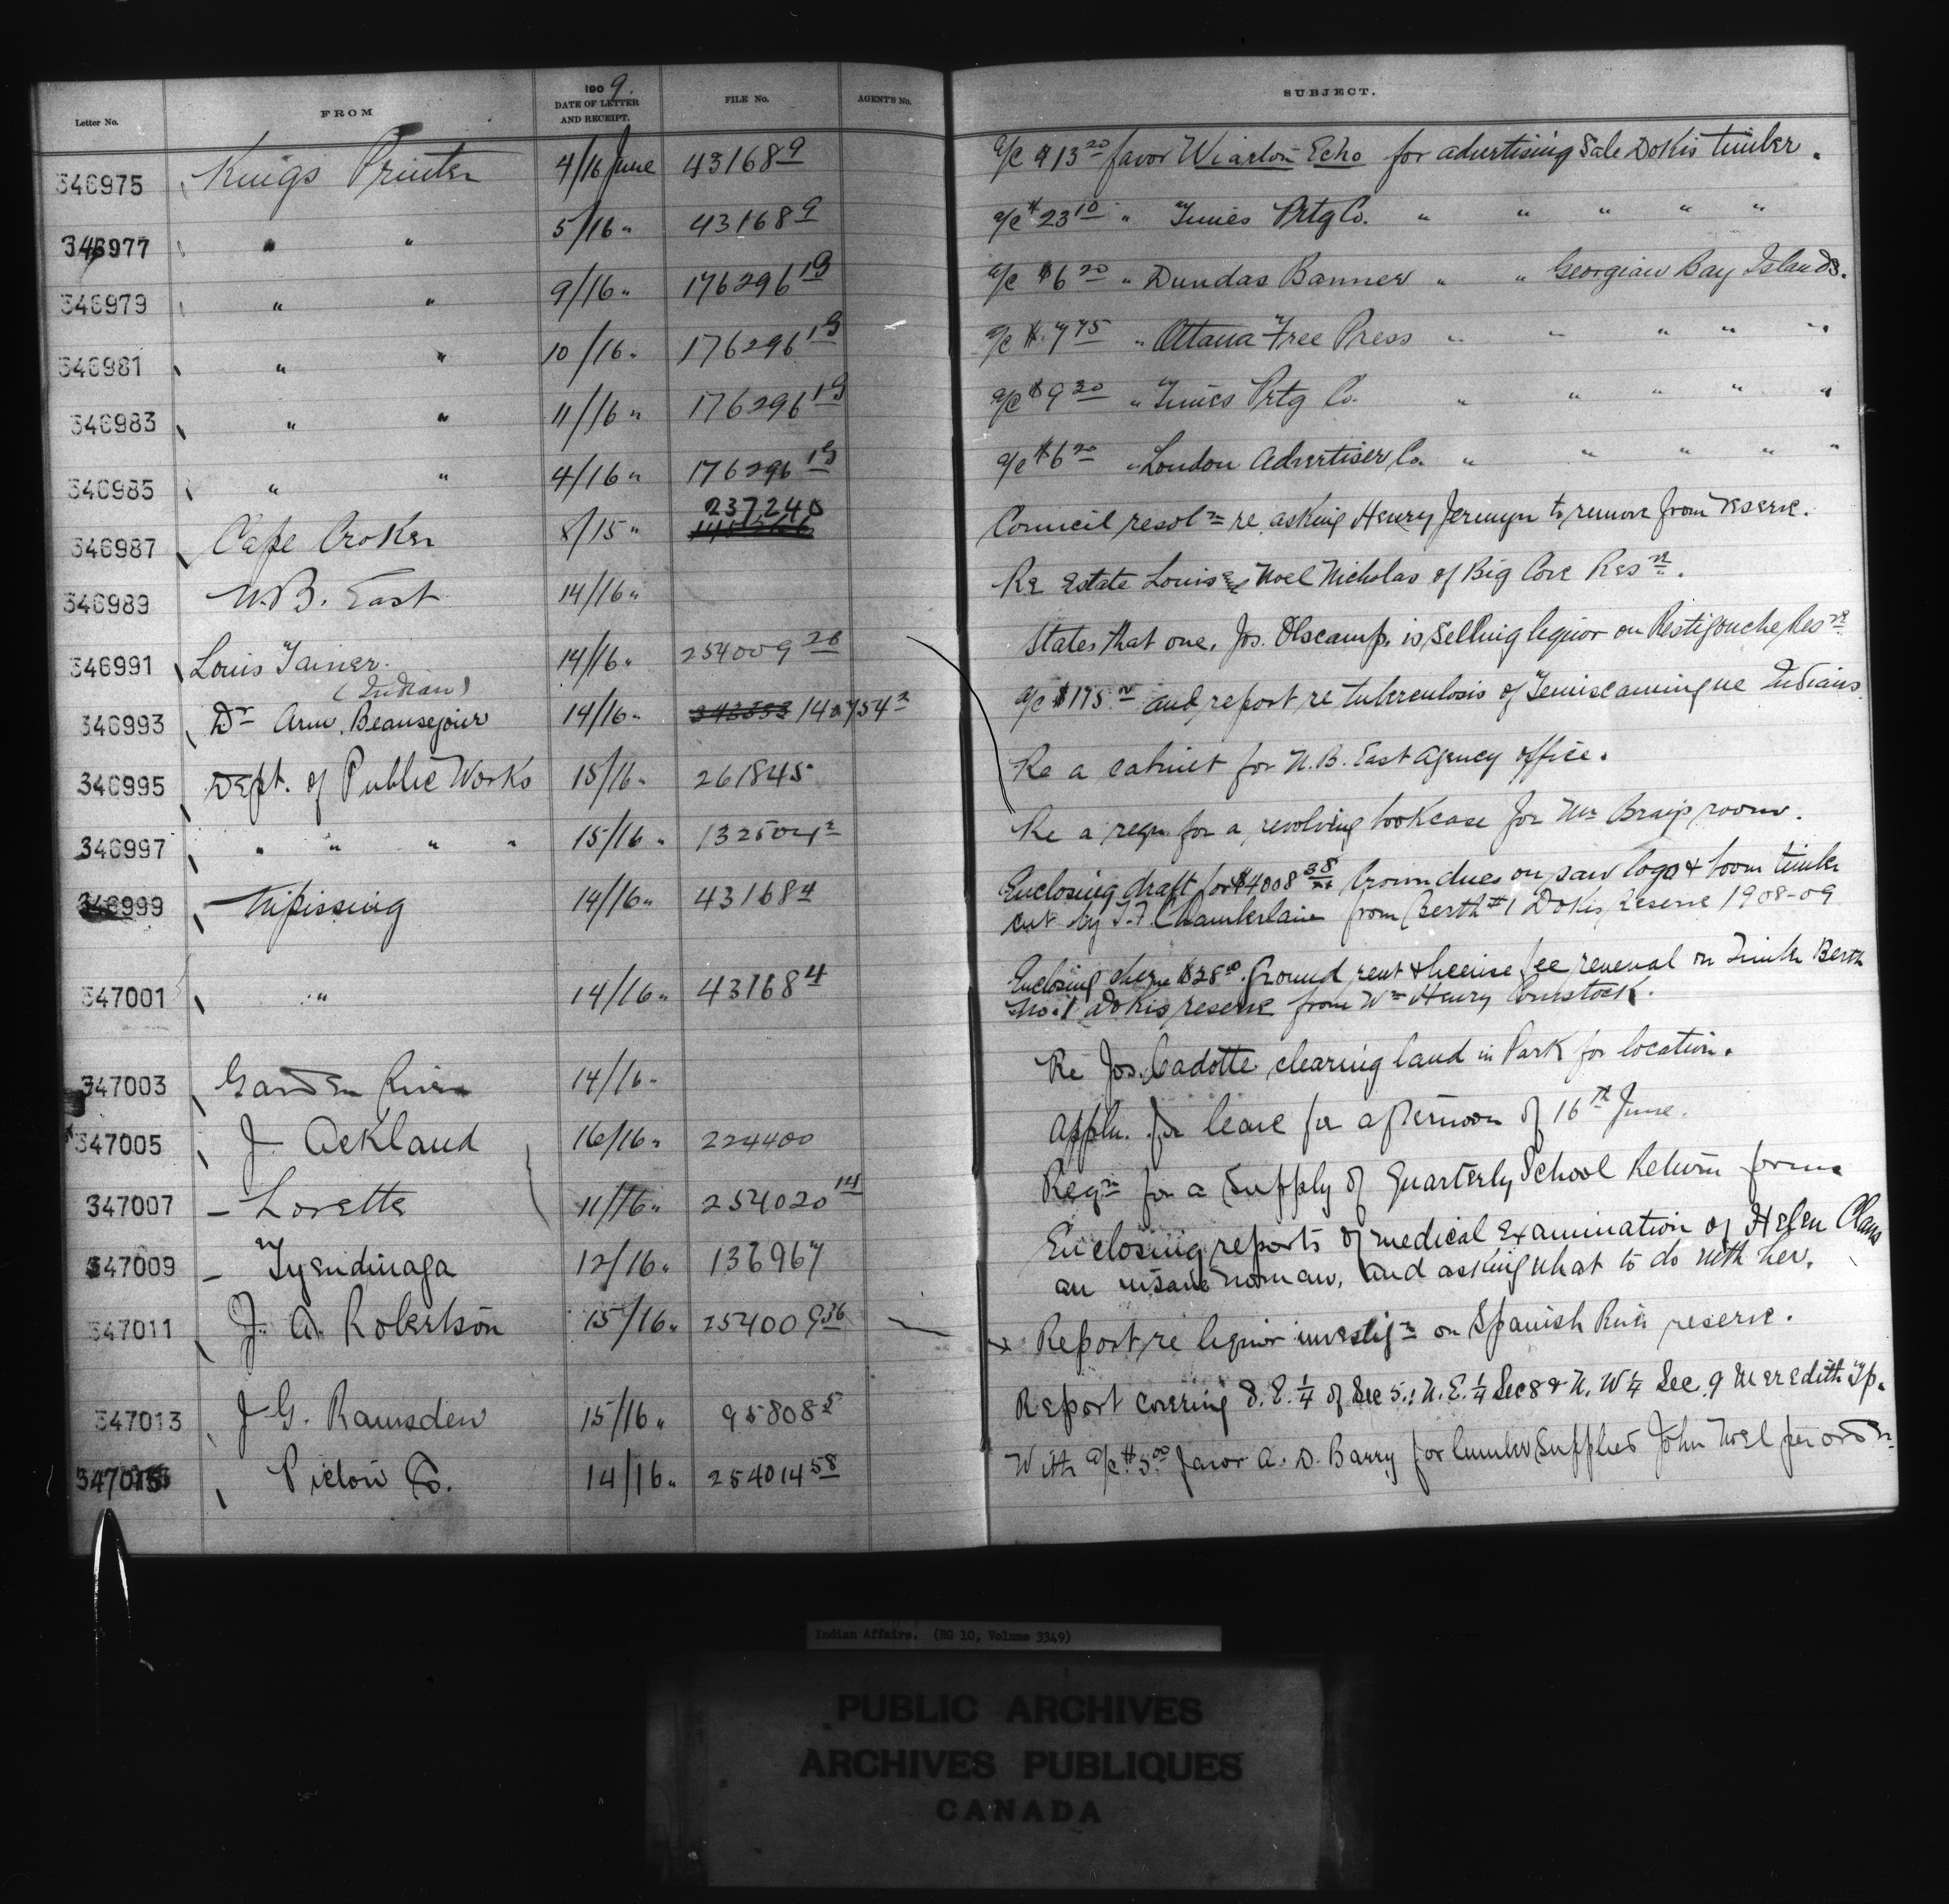 Letter No. FROM 1909. DATE OF LETTER AND RECEIPT. FILE No. AGENT'S No. SUBJECT.
346975 Kings Printer 4/16 June 43168 9 a/c $13 20 favor Wiarton Echo for advertising Sale Dokis timber.
346977 " " 5/16 " 43168 9 a/c $23 10 " Times Prtg Co. " " " " "
346979 " " 9/16 " 176296 13 a/c $6 20 " Dundas Banner " " Georgian Bay Islands.
346981 " " 10/16 " 176296 13 a/c $7 75 " Ottawa Free Press " " " " "
346983 " " 11/16 " 176296 13 a/c $9 30 " Times Prtg Co. " " " " "
346985 " " 4/16 " 176296 13 a/c $6 20 " London Advertiser Co. " " " " "
346987 Cape Croker 8/15 " 237,240 Council resol n re asking Henry Jermyn to remove from reserve.
346989 N.B. East 14/16 " Re Estate Louis Noel Nicholas of Big Cove Res ve.
346991 Louis 14/16 " 254009 26 States that one, Jos. Olscamp, is selling liquor on Restigouche Res ve
(Indian)
346993 Dr Arm. Beausejour 14/16 " 140754 2 a/c $175 and report re tuberculosis of Temiscamingue Indians
346995 Dept. of Public Works 15/16 " 261845 Re a cabinet for N.B. East Agency office.
346997 " " " " 15/16 " Re a reqn. for a revolving bookcase for Mr room.
346999 Nipissing 14/16 " 43168 4 Enclosing draft for $4008 38 Crown dues on saw logs & boom timber
cut by J.F. Chamberlain from Berth #1 Dokis Reserve 1908-09
347001 " 14/16 " 43168 4 Enclosing $28 00 Ground rent & license fee renewal on Timber Berth
No. 1 Dokis reserve from Wm Henry Comstock.
347003 Garden River 14/16 " Re Jos. Cadotte clearing land in Park for location.
347005 J. Ackland 16/16 " 224400 Appln. for leave for afternoon of 16th June.
347007 Lorette 11/16 " 254020 14 Reqn for a supply of Quarterly School Return forms
347009 Tyendinaga 12/16 " 136967 Enclosing reports of medical examination of Helen Claus
an insane woman, and asking what to do with her.
347011 J. A. Robertson 15/16 " 254009 36 Report re liquor investig n on Spanish River reserve.
347013 J. G. Ramsden 15/16 " 95808 5 Report covering S.E. 1/4 of Sec 5.; N.E. 1/4 Sec 8 & N.W 1/4 Sec. 9 Meredith Tp.
347015 Pictou Co. 14/16 " 254014 58 With a/c $5.00 favor A. D. Barry for lumber supplied John Noel per order
Indian Affairs. (RG 10, Volume 3349)
PUBLIC ARCHIVES
ARCHIVES PUBLIQUES
CANADA